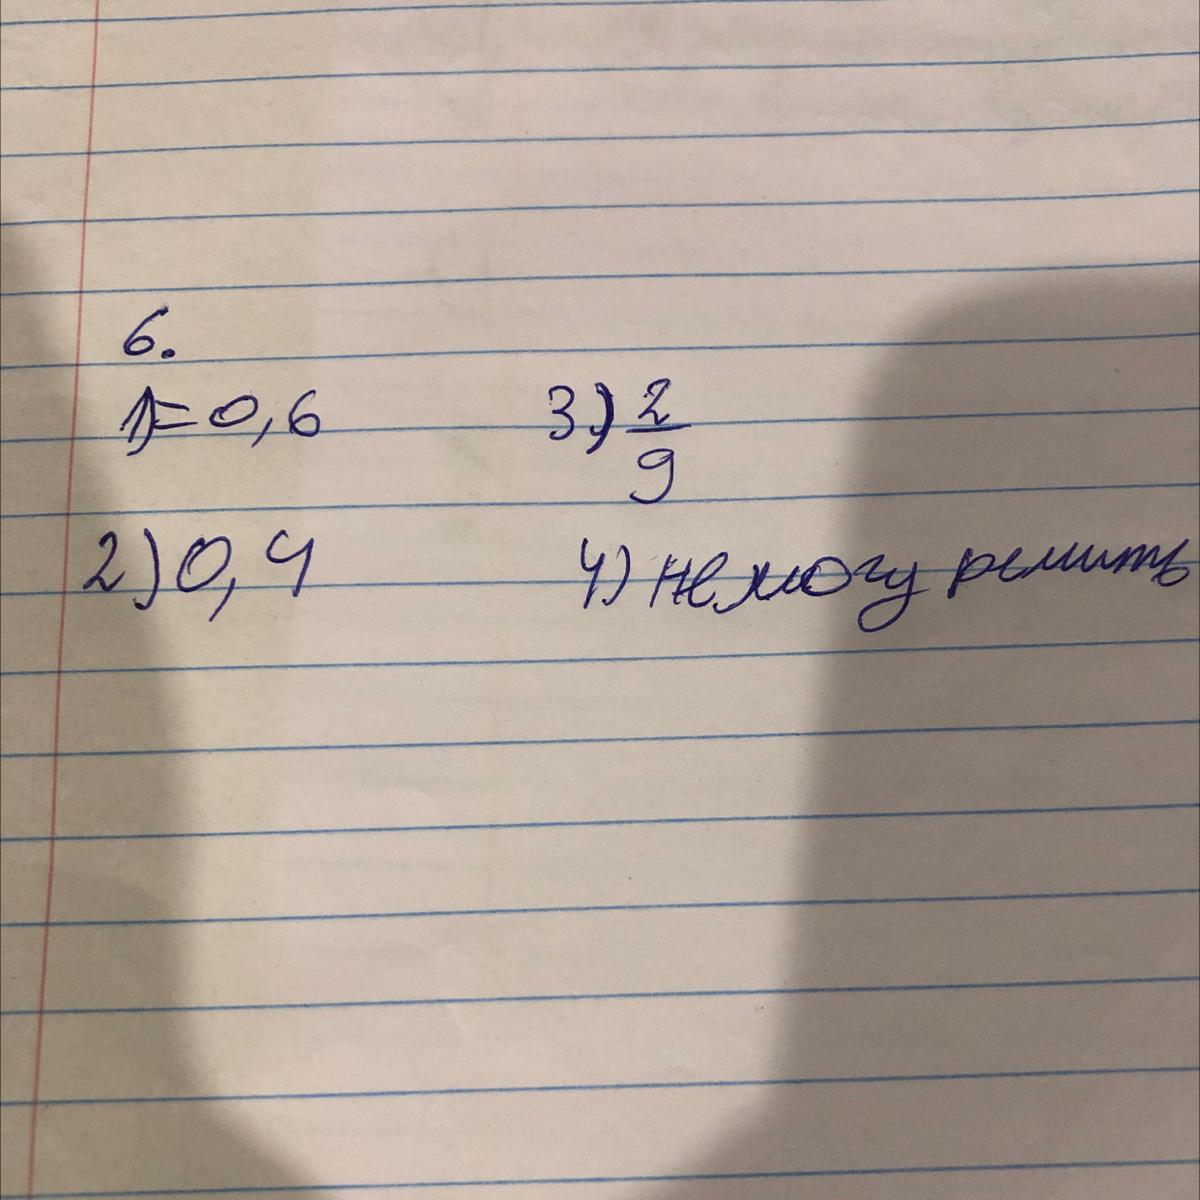 6.
1)=0,6
2)0,4
3) 2/9
4) не могу решить